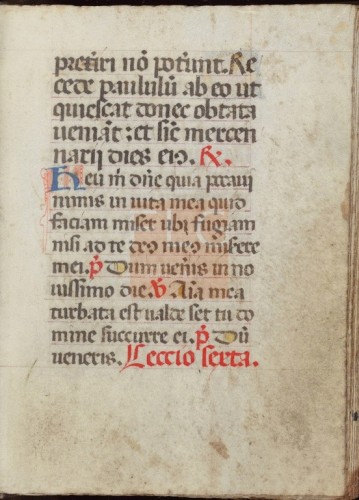 preteriri nō poterunt. Re
cede paululū ab eo ut
quiescat donec obtata
veniat : et sic mercen
narii dies eiꝰ. R.
Heu m̄ dn̄e quia peccavi
nimis in vita mea quid
faciam miser ubi fugiam
nisi ad te deꝰ meꝰ miserere
mei. P Dum veneris in no
vissimo die. V Aīa mea
turbata est valde set tu do
mine succurre ei. P Dū
veneris. Leccio sexta.